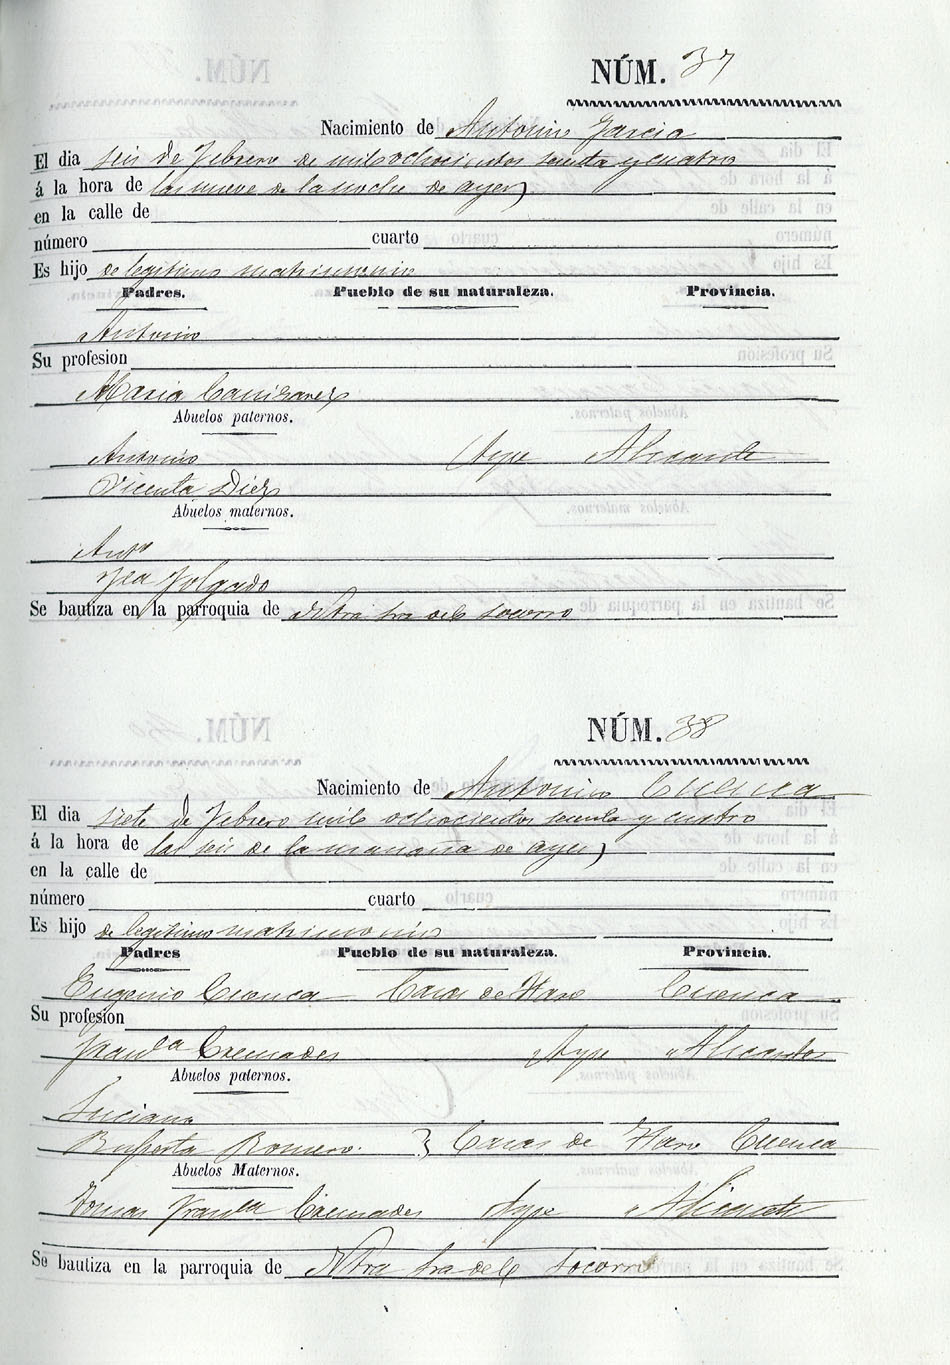 NÚM. 37
Nacimiento de Antonio Garcia
El dia seis de Febrero de mil ochocientos sesenta y cuatro
á la hora de las nueve de la noche de ayer)
en la calle de
número cuarto
Es hijo de legitimo matrimonio
Padres. Pueblo de su naturaleza. Provincia.
Antonio
Su profesion
Maria Cañizares
Abuelos paternos.
Antonio Aspe Alicante
Vicenta Diez
Abuelos maternos.
Antº
Fca Folgado
Se bautiza en la parroquia de Ntra Sra del Socorro
NÚM. 38
Nacimiento de Antonino Cuenca
El dia siete de Febrero mil ochocientos sesenta y cuatro
á la hora de las seis de la mañana de ayer)
en la calle de
número cuarto
Es hijo de legitimo matrimonio
Padres Pueblo de su naturaleza. Provincia.
Eugenio Cuenca Casas de Haro Cuenca
Su profesion
Franca Cremades Aspe Alicante
Abuelos paternos.
Luciano
Ruperta Romero. } Casas de Haro Cuenca
Abuelos Maternos.
Tomas Franca Cremades Aspe Alicante
Se bautiza en la parroquia de Ntra Sra del Socorro